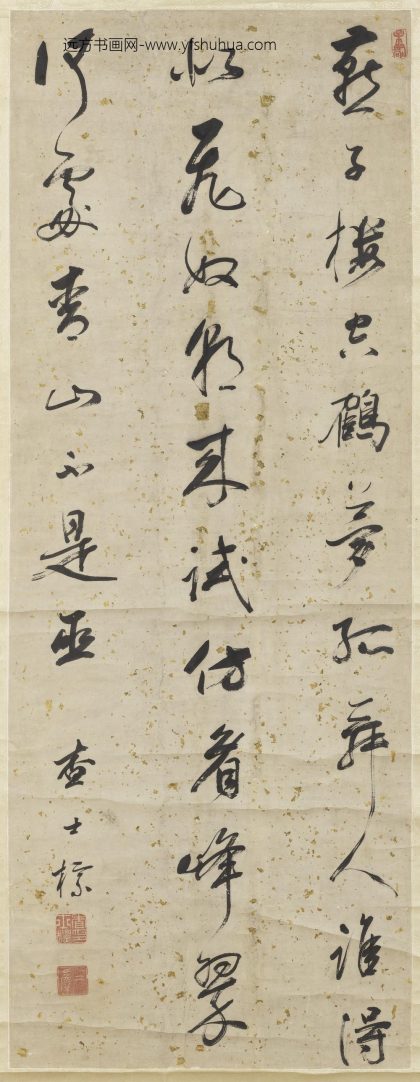 远方书画网-www.yfshuhua.com
燕子樓空鶴夢孤舞人誰得
似花奴朝来試仿峰翠
何處青山不是巫
查士標